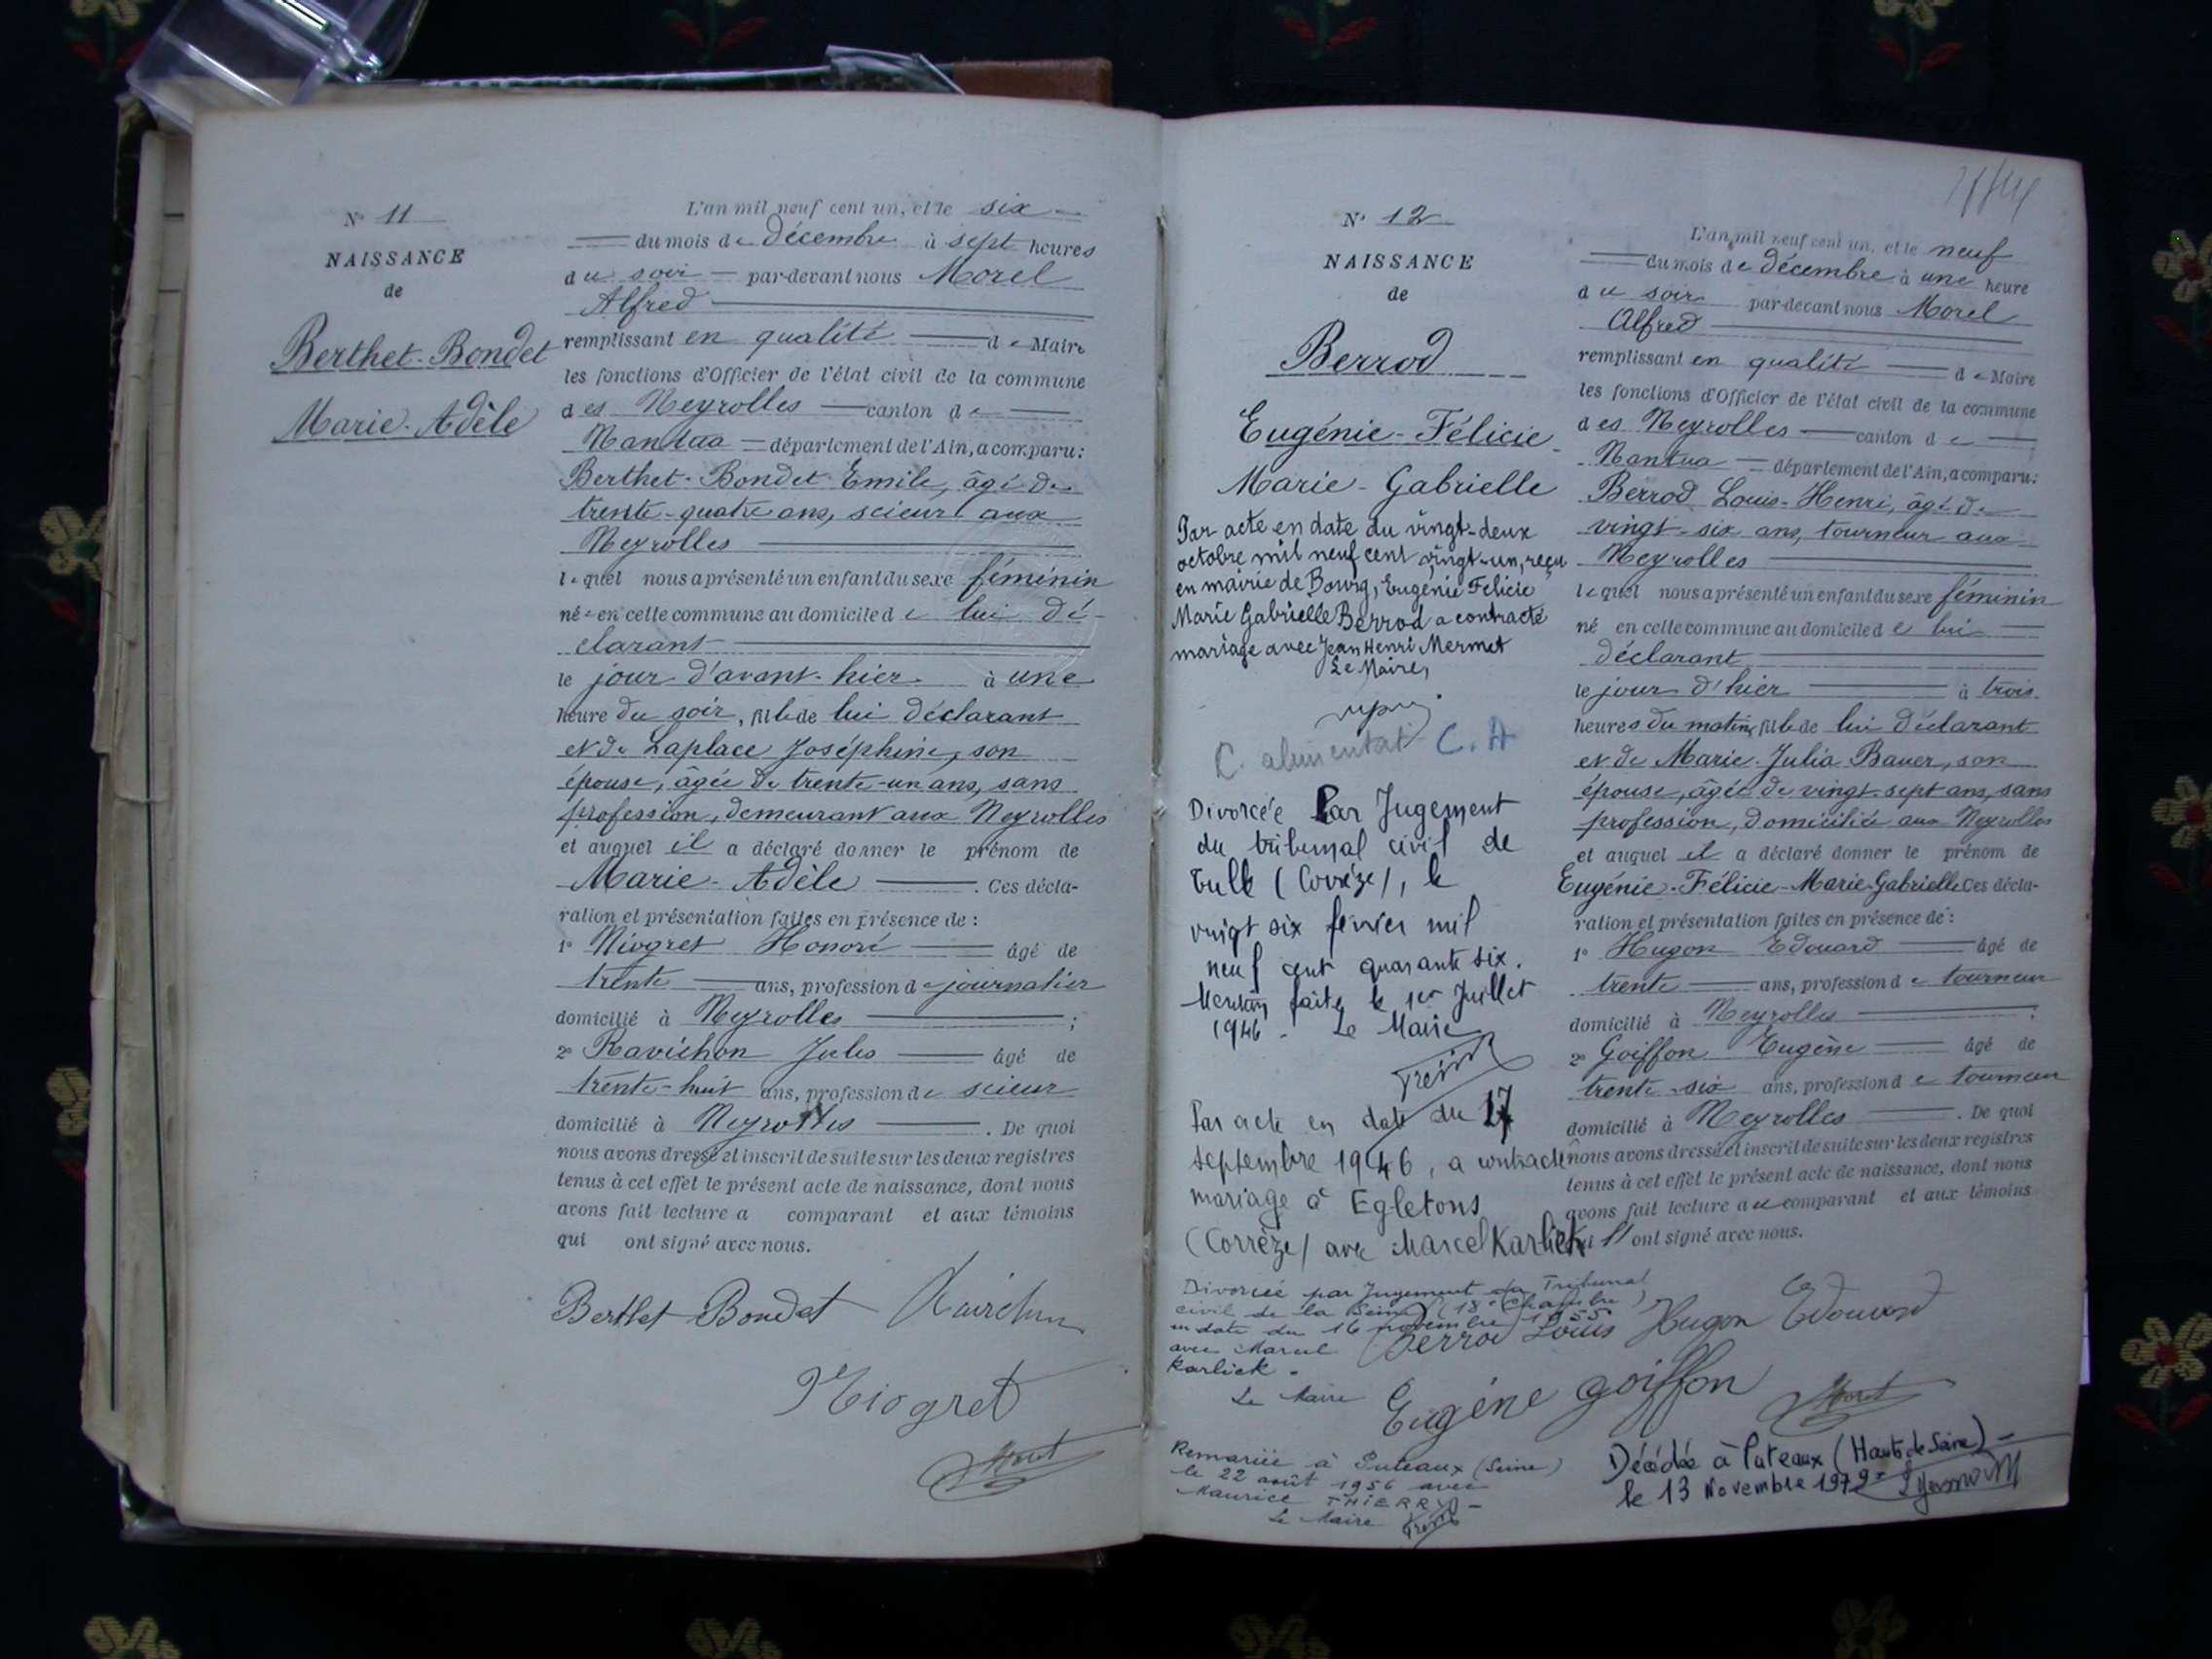 N° 11
NAISSANCE
de
Berthet-Bondet
Marie-Adèle
L'an mil neuf cent un, et le six
du mois de décembre à sept heures
du soir par-devant nous Morel
Alfred
remplissant en qualité de Maire
les fonctions d'Officier de l'état civil de la commune
des Neyrolles canton de
Nantua département de l'Ain, a comparu:
Berthet-Bondet Emile, âgé de
trente-quatre ans, scieur aux
Neyrolles
lequel nous a présenté un enfant du sexe féminin
née en cette commune au domicile de lui dé-
clarant
le jour d'avant-hier à une
heure du soir, fille de lui déclarant
et de Laplace Joséphine, son
épouse, âgée de trente-un ans, sans
profession, demeurant aux Neyrolles
et auquel il a déclaré donner le prénom de
Marie-Adèle. Ces décla-
ration et présentation faites en présence de :
1° Niogret Honoré âgé de
trente ans, profession de journalier
domicilié à Neyrolles ;
2° Ravichon Jules âgé de
trente-huit ans, profession de scieur
domicilié à Neyrolles. De quoi
nous avons dressé et inscrit de suite sur les deux registres
tenus à cet effet le présent acte de naissance, dont nous
avons fait lecture a comparant et aux témoins
qui ont signé avec nous.
Berthet Bondet Ravichon
Niogret
Morel
N° 12
NAISSANCE
de
Berrod
Eugénie-Félicie
Marie-Gabrielle
Par acte en date du vingt-deux
octobre mil neuf cent vingt-un, reçu
en mairie de Bourg, Eugénie Felicie
Marie Gabrielle Berrod a contracté
mariage avec Jean Henri Mermet
Le Maire,
C. alimentat C. A
Divorcée Par Jugement
du tribunal civil de
Tulle (Corrèze), le
vingt six février mil
neuf cent quarante six.
Mention faite le 1er Juillet
1946 - Le Maire
Par acte en date du 17
septembre 1946, a contracté
mariage à Egletons
(Corrèze) avec Marcel Karlick
Divorcée par Jugement du Tribunal
civil de la Seine (18e Chambre)
en date du 16 novembre 1955
avec Marcel
Karlick.
Le Maire
Remariée à Puteaux (Seine)
le 22 août 1956 avec
Maurice THIERRY -
Le Maire
L'an mil neuf cent un, et le neuf
du mois de décembre à une heure
du soir par-devant nous Morel
Alfred
remplissant en qualité de Maire
les fonctions d'Officier de l'état civil de la commune
des Neyrolles canton de
Nantua département de l'Ain, a comparu:
Berrod Louis-Henri, âgé de
vingt-six ans, tourneur aux
Neyrolles
lequel nous a présenté un enfant du sexe féminin
né en cette commune au domicile de lui
déclarant
le jour d'hier à trois
heures du matin, fille de lui déclarant
et de Marie-Julia Bauer, son
épouse, âgée de vingt-sept ans, sans
profession, domiciliée aux Neyrolles
et auquel il a déclaré donner le prénom de
Eugénie-Félicie-Marie-Gabrielle Ces décla-
ration et présentation faites en présence de :
1° Hugon Edouard âgé de
trente ans, profession de tourneur
domicilié à Neyrolles ;
2° Goiffon Eugène âgé de
trente-six ans, profession de tourneur
domicilié à Neyrolles. De quoi
nous avons dressé et inscrit de suite sur les deux registres
tenus à cet effet le présent acte de naissance, dont nous
avons fait lecture au comparant et aux témoins
qui ont signé avec nous.
Berrod Louis Hugon Edouard
Eugène Goiffon Morel
Décédée à Puteaux (Hauts de Seine) -
le 13 Novembre 1979